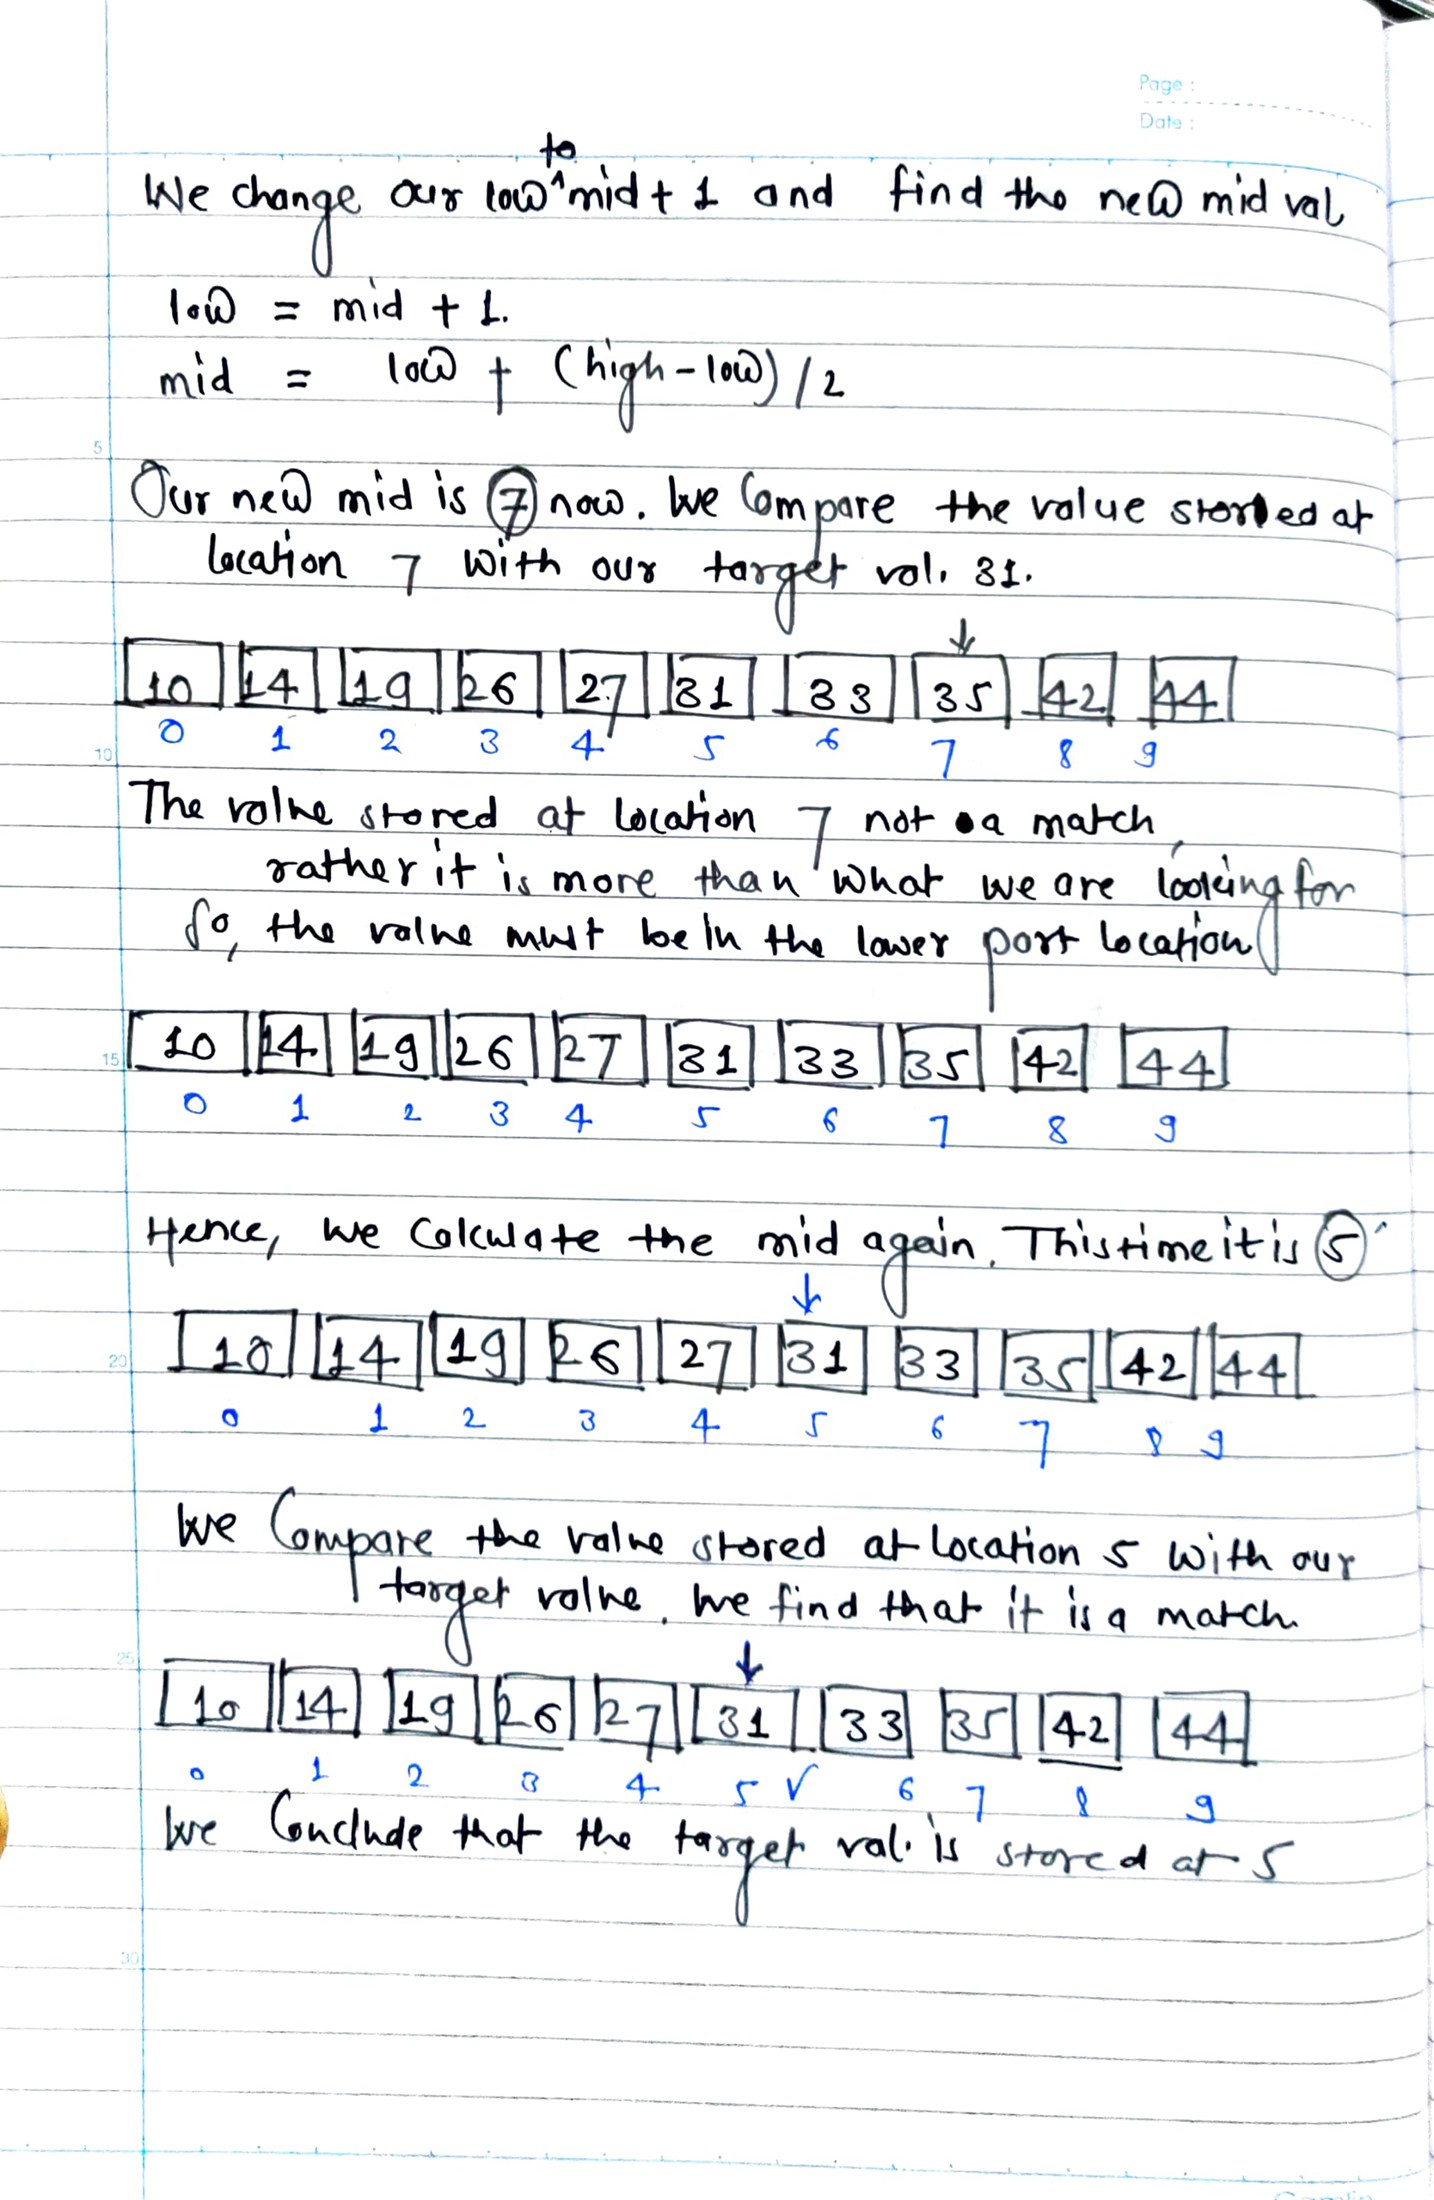 Page :
Date :
to
We change our low ^ mid + 1 and find the new mid val
low = mid + 1.
mid = low + (high - low) / 2
5
Our new mid is 7 now. We Compare the value stored at
location 7 with our target val. 31.
10 14 19 26 27 31 33 35 42 44
0 1 2 3 4 5 6 7 8 9
10
The value stored at location 7 not a match,
rather it is more than what we are looking for
So, the value must be in the lower part location
10 14 19 26 27 31 33 35 42 44
15
0 1 2 3 4 5 6 7 8 9
Hence, we Calculate the mid again. This time it is 5
10 14 19 26 27 31 33 35 42 44
20
0 1 2 3 4 5 6 7 8 9
We Compare the value stored at location 5 with our
target value. We find that it is a match.
25
10 14 19 26 27 31 33 35 42 44
0 1 2 3 4 5 ✓ 6 7 8 9
We Conclude that the target val. is stored at 5
30